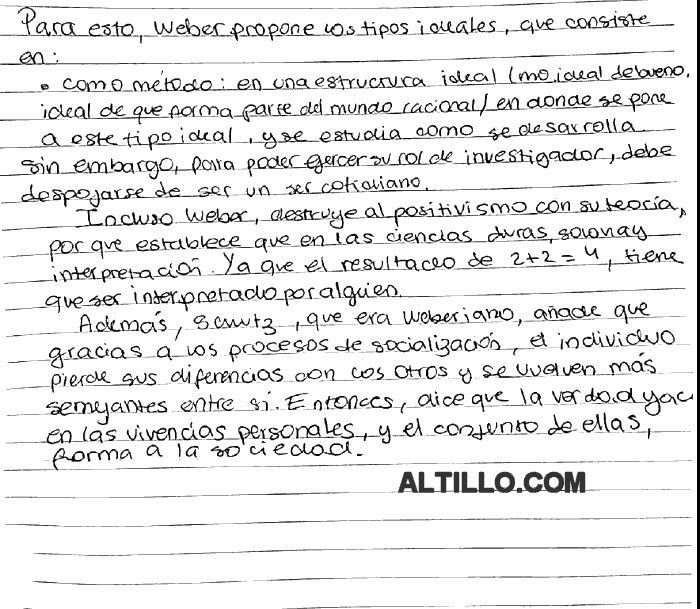 Para esto, Weber propone los tipos ideales, que consiste
en:
• como método: en una estructura ideal (no ideal de bueno,
ideal de que forma parte del mundo racional) en donde se pone
a este tipo ideal, y se estudia como se desarrolla.
Sin embargo, para poder ejercer su rol de investigador, debe
despojarse de ser un ser cotidiano.
Incluso Weber, destruye al positivismo con su teoría,
por que establece que en las ciencias duras, solo hay
interpretación. Ya que el resultado de 2+2=4, tiene
que ser interpretado por alguien.
Además, Schutz, que era weberiano, añade que
gracias a los procesos de socialización, el individuo
pierde sus diferencias con los otros y se vuelven más
semejantes entre sí. Entonces, dice que la verdad yac
en las vivencias personales, y el conjunto de ellas,
forma a la sociedad.
ALTILLO.COM